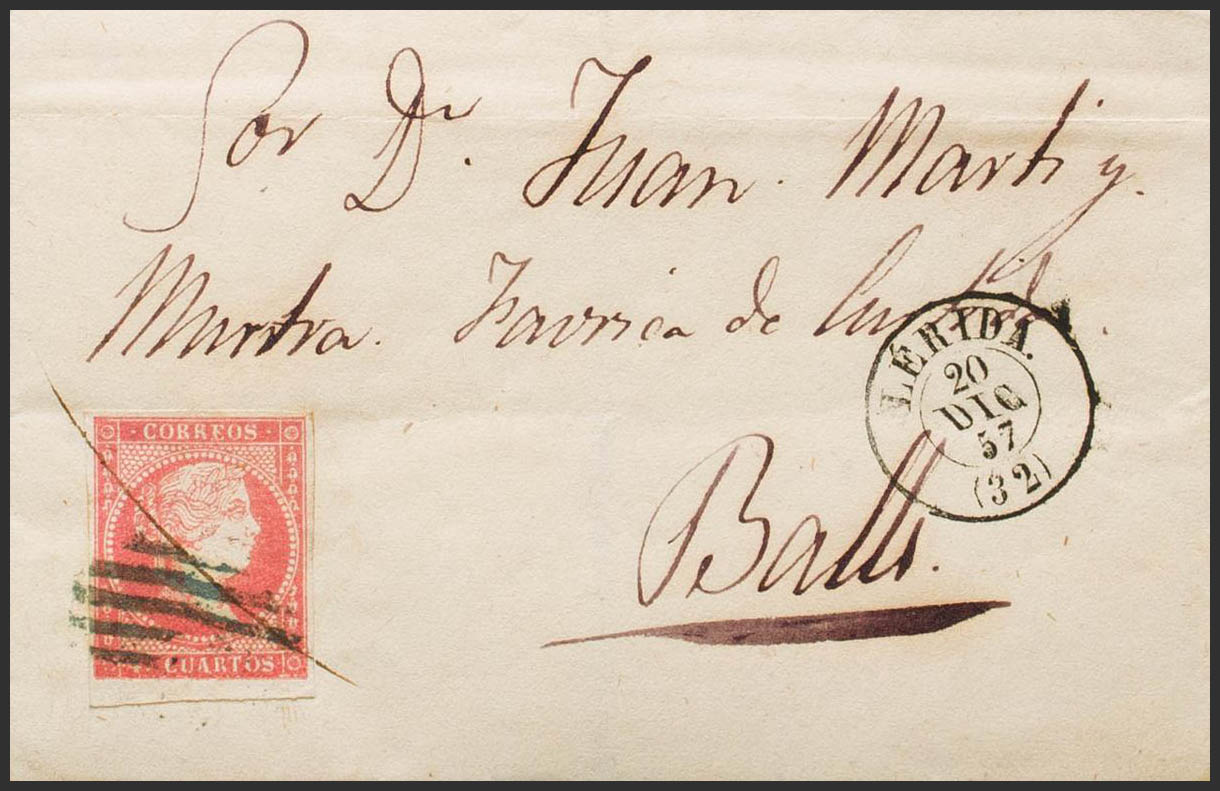 Sor Dn. Juan Marti y.
Martra. Favrica de
LÉRIDA.
20
DIC
57
(32)
Balls.
CORREOS
4 CUARTOS